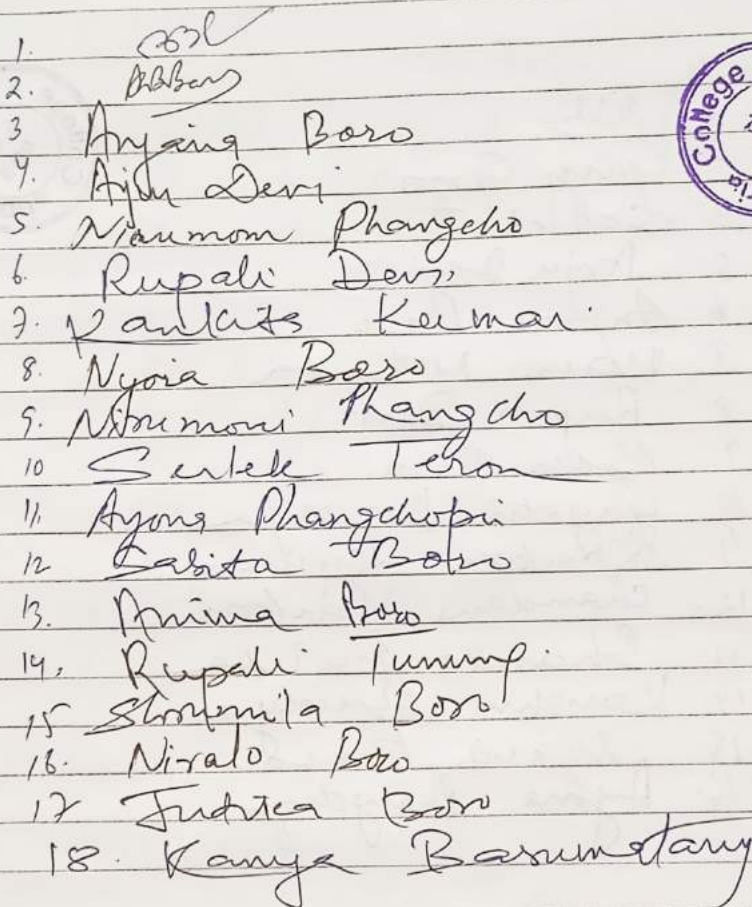 1.
2.
3 Anjana Boro
4. Aju Devi
5. Nirumoni Phangcho
6. Rupali Devi
7. Kankita Kumar
8. Nyoia Boro
9. Nirumoni Phangcho
10 Sertek Teron
11. Ayona Phangchopi
12 Sabita Boro
13. Anima Boro
14. Rupali
15 Boro
16. Niralo Boro
17 Boro
18. Kanya Basumatary
College